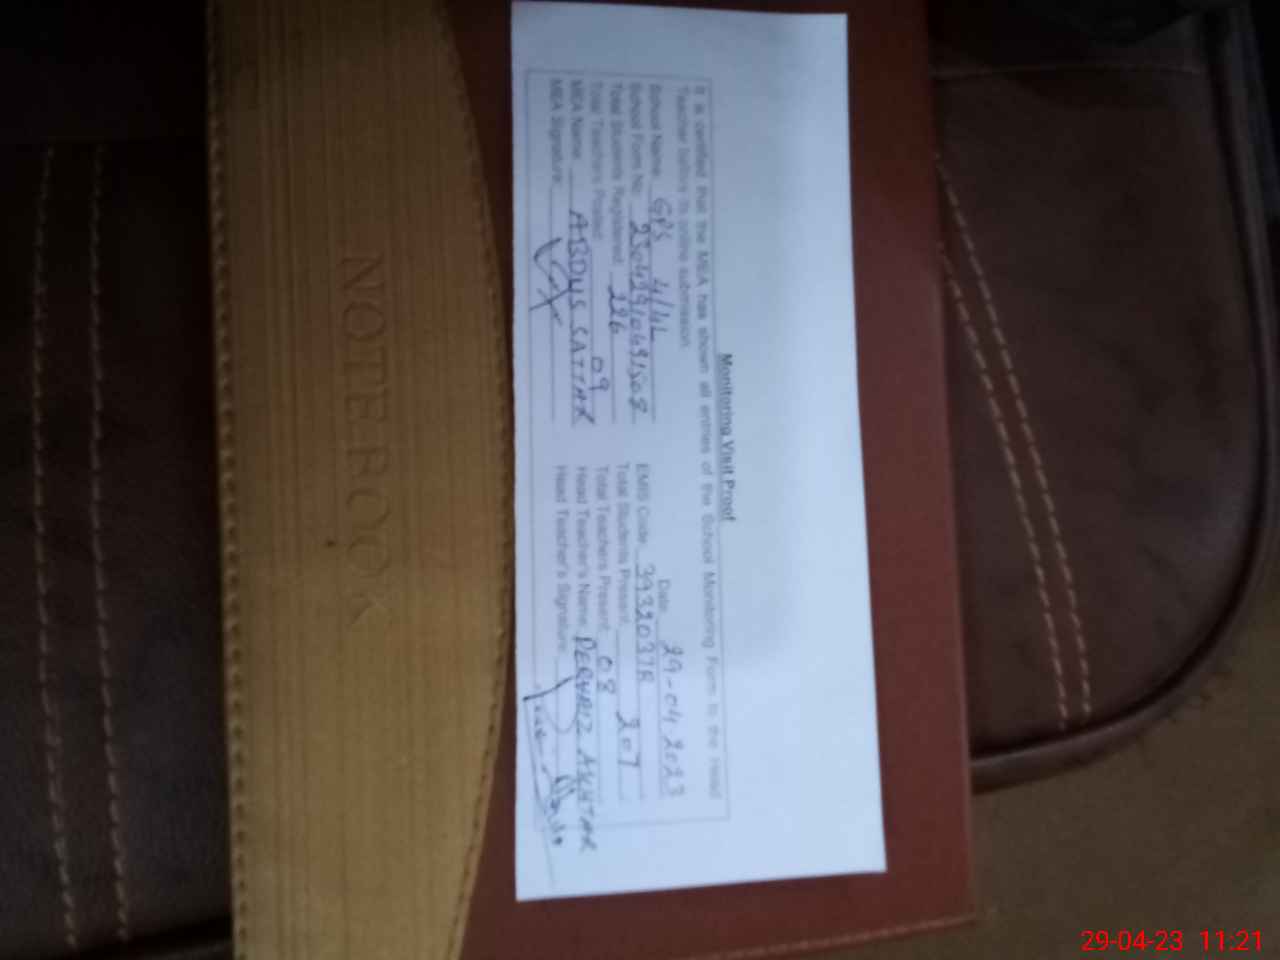 Monitoring Visit Proof
It is certified that the MEA has shown all entries of the School Monitoring Form to the Head
Teacher before its online submission.
Date 29-04 2023
School Name GPS 4/4L
School Form No. EMIS Code
Total Students Registered 226 Total Students Present 207
Total Teachers Posted 09 Total Teachers Present 08
MEA Name ABDUS SATTAR Head Teacher's Name PERVAIZ AKHTAR
MEA Signature Head Teacher's Signature
NOTE BOOK
29-04-23 11:21